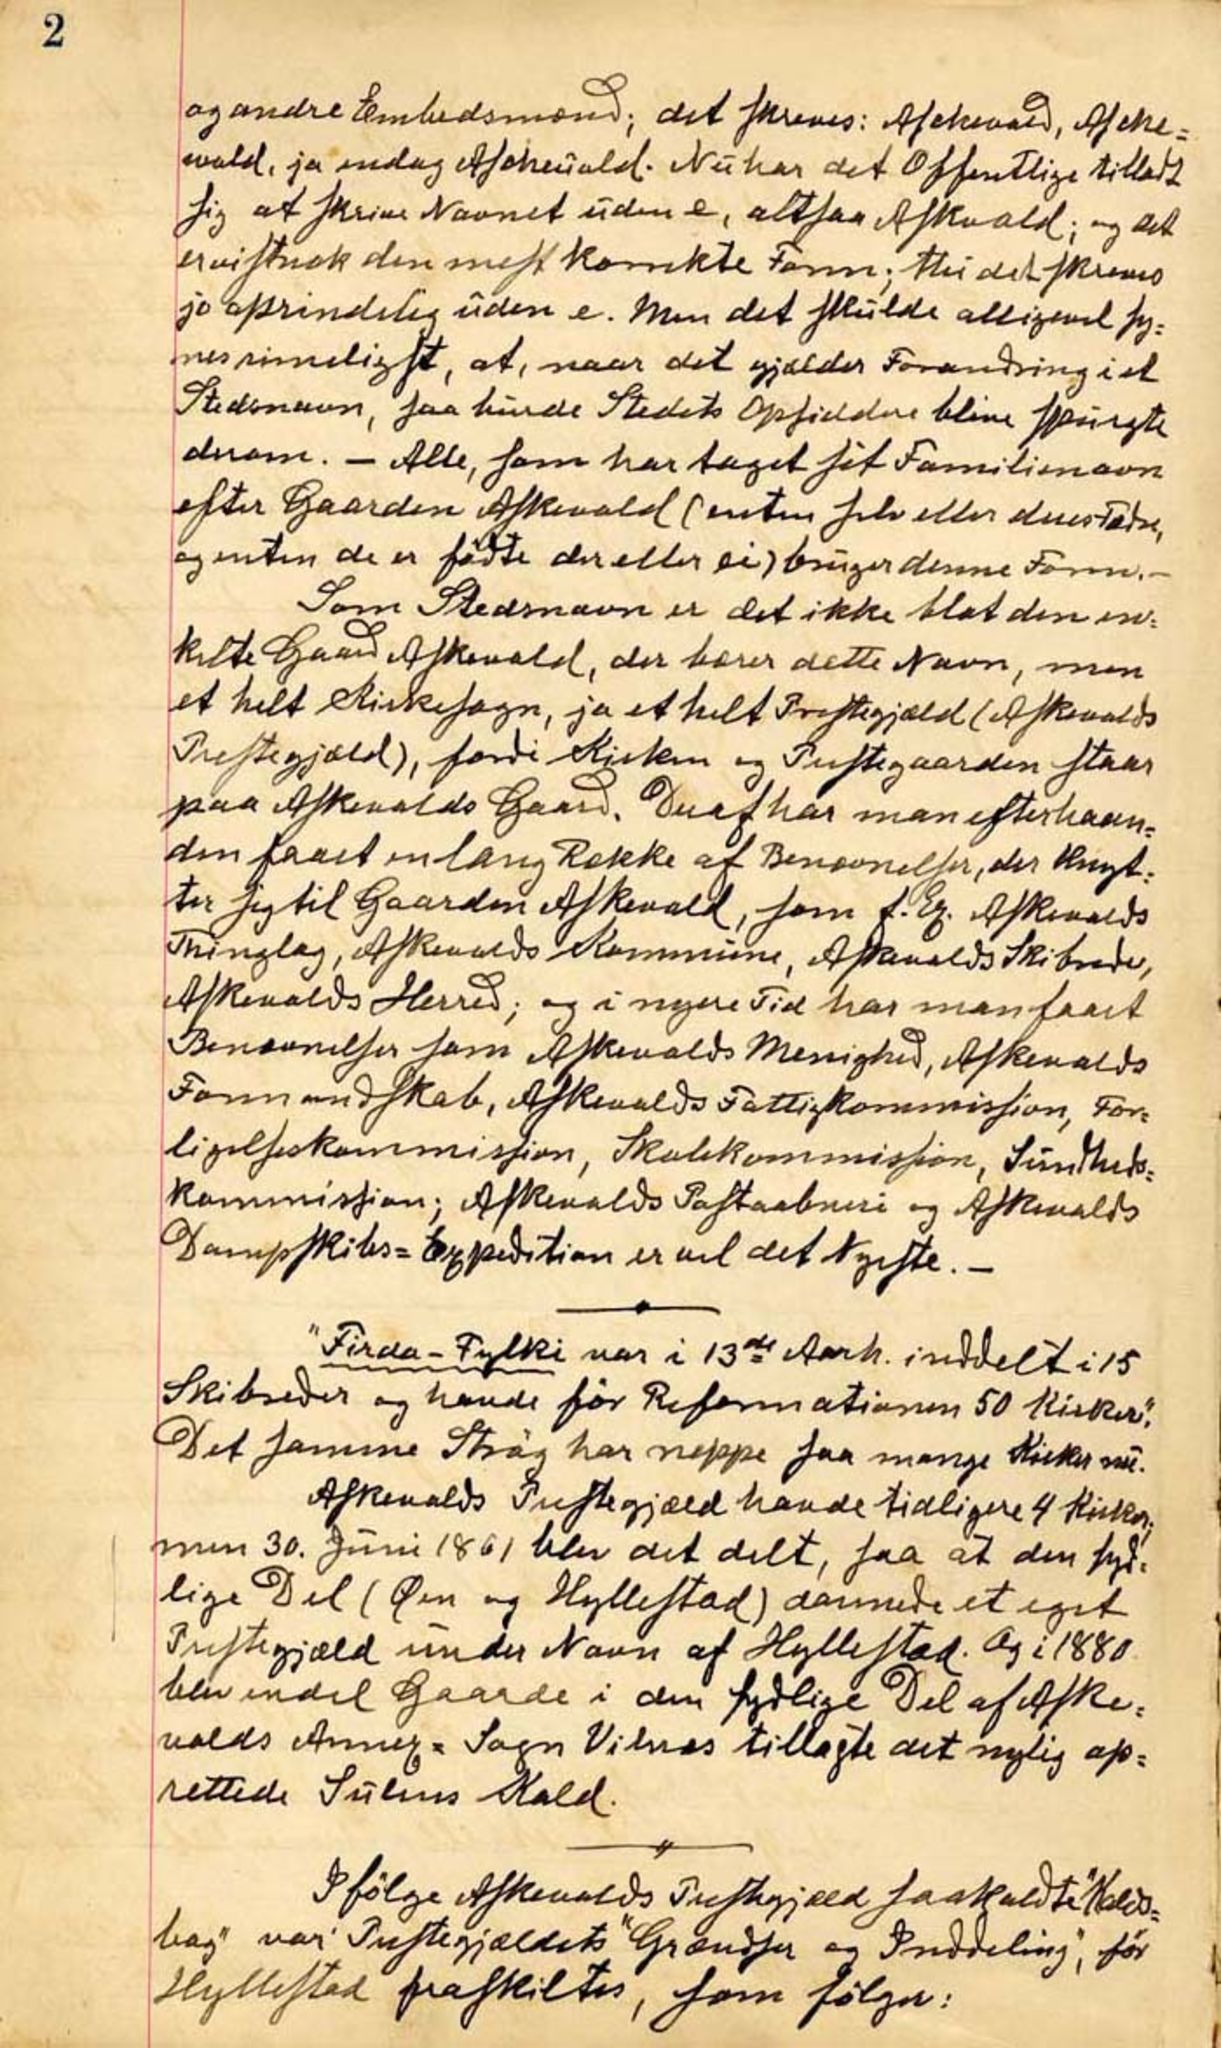 2
og andre Embedsmænd; det skreves: Aschevold, Asche=
wald, ja endog Ascheuald. Nu har det Offentlige tilladt
sig at skrive Navnet uden e, altsaa Askvold; og det
er vistnok den mest korrekte Form; thi det skreves
jo oprindelig uden e. Men det skulde alligevel sy=
nes rimeligst, at, naar det gjælder Forandring i et
Stedsnavn, saa burde Stedets Opsiddere blive spurgte
derom. — Alle, som har taget sit Familienavn
efter Gaarden Askevold (enten selv eller deres Fædre,
og enten de er fødte der eller ei) bruger denne Form. —
Som Stedsnavn er det ikke blot den en=
kelte Gaard Askevold, der bærer dette Navn, men
et helt Kirkesogn, ja et helt Prestegjæld (Askevolds
Prestegjæld), fordi Kirken og Prestegaarden staar
paa Askevolds Gaard. Deraf har man efterhaan=
den faaet en lang Række af Benævnelser, der knyt=
ter sig til Gaarden Askevold, som f. Ex. Askevolds
Thinglag, Askevolds Kommune, Askevolds Skibrede,
Askevolds Herred; og i nyere Tid har man faaet
Benævnelser som Askevolds Menighed, Askevolds
Formandskab, Askevolds Fattigkommission, For=
ligelseskommission, Skolekommission, Sundheds=
kommission; Askevolds Postaabneri og Askevolds
Dampskibs=Expedition er vel det Nyeste. —
"Firda-Fylki var i 13de Aarh. inddelt i 15
Skibreder og havde før Reformationen 50 Kirker".
Det samme Strøg har neppe saa mange Kirker nu.
Askevolds Prestegjæld havde tidligere 4 Kirker;
men 30. Juni 1861 blev det delt, saa at den syd=
lige Del (Øen og Hyllestad) dannede et eget
Prestegjæld under Navn af Hyllestad. Og i 1880
blev endel Gaarde i den sydlige Del af Aske=
volds Annex=Sogn Vilnæs tillagte det nylig op=
rettede Sulens Kald.
Ifølge Askevolds Prestegjæld saakaldte "Kalds=
bog" var Prestegjældets "Grændser og Inddeling", før
Hyllestad fraskiltes, som følger: